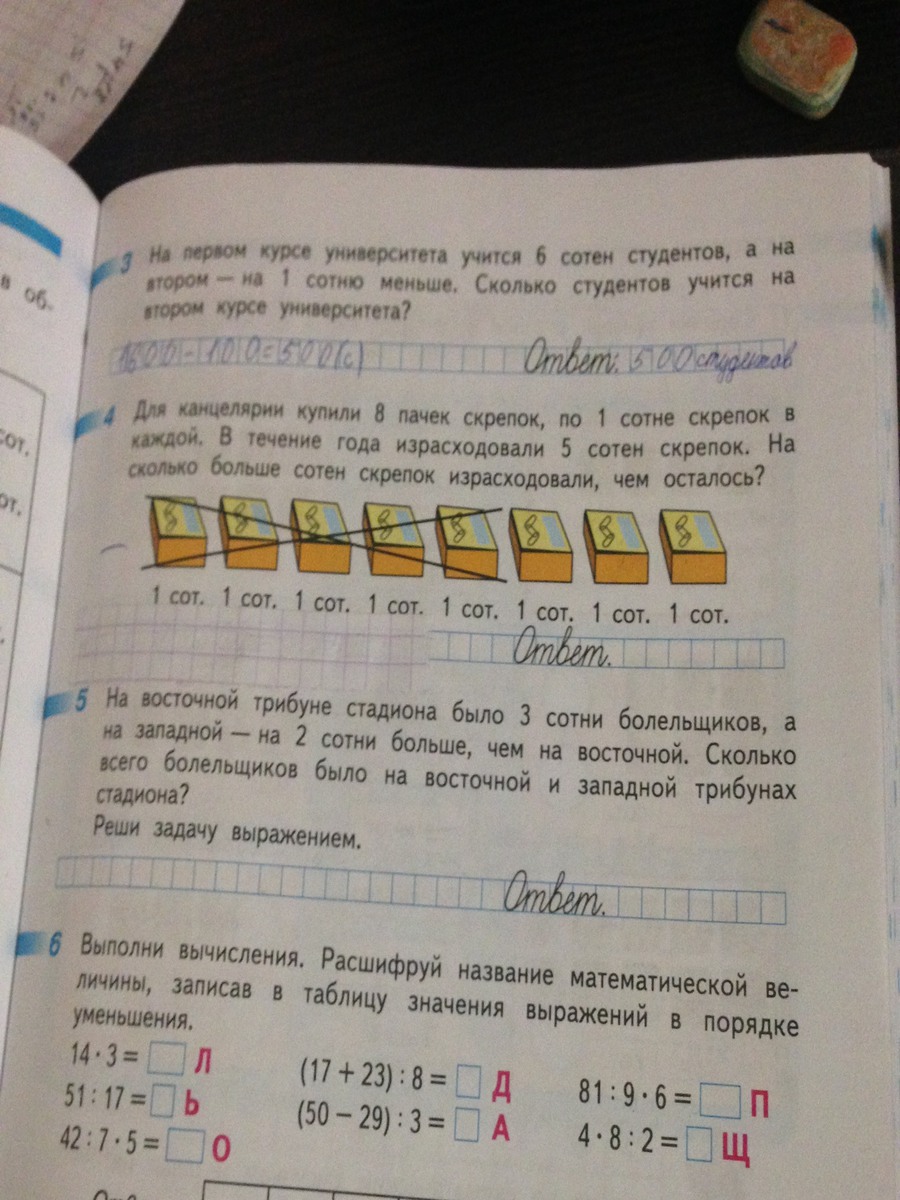 в об.
сот.
от.
3 На первом курсе университета учится 6 сотен студентов, а на
втором — на 1 сотню меньше. Сколько студентов учится на
втором курсе университета?
600-100=500(с) Ответ: 500 студентов
4 Для канцелярии купили 8 пачек скрепок, по 1 сотне скрепок в
каждой. В течение года израсходовали 5 сотен скрепок. На
сколько больше сотен скрепок израсходовали, чем осталось?
1 сот. 1 сот. 1 сот. 1 сот. 1 сот. 1 сот. 1 сот. 1 сот.
Ответ.
5 На восточной трибуне стадиона было 3 сотни болельщиков, а
на западной — на 2 сотни больше, чем на восточной. Сколько
всего болельщиков было на восточной и западной трибунах
стадиона?
Реши задачу выражением.
Ответ.
6 Выполни вычисления. Расшифруй название математической ве-
личины, записав в таблицу значения выражений в порядке
уменьшения.
14 · 3 = Л (17 + 23) : 8 = Д 81 : 9 · 6 = П
51 : 17 = Ь (50 − 29) : 3 = А 4 · 8 : 2 = Щ
42 : 7 · 5 = О